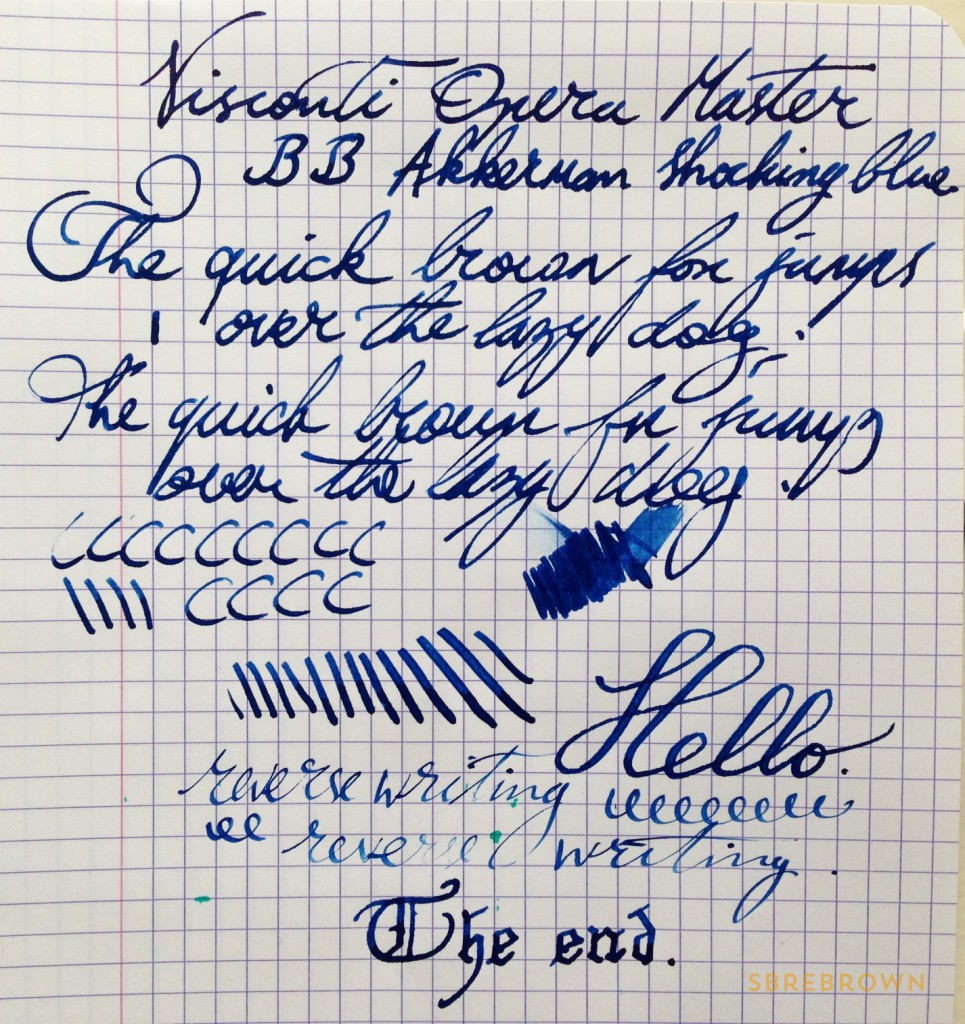 Visconti Opera Master
BB Akkerman Shocking blue
The quick brown fox jumps
over the lazy dog.
The quick brown fox jumps
over the lazy dog.
CCCCCCCCC
CCCC
Hello.
reverse writing eeeeeee
ee reverse writing.
The end.
SBREBROWN